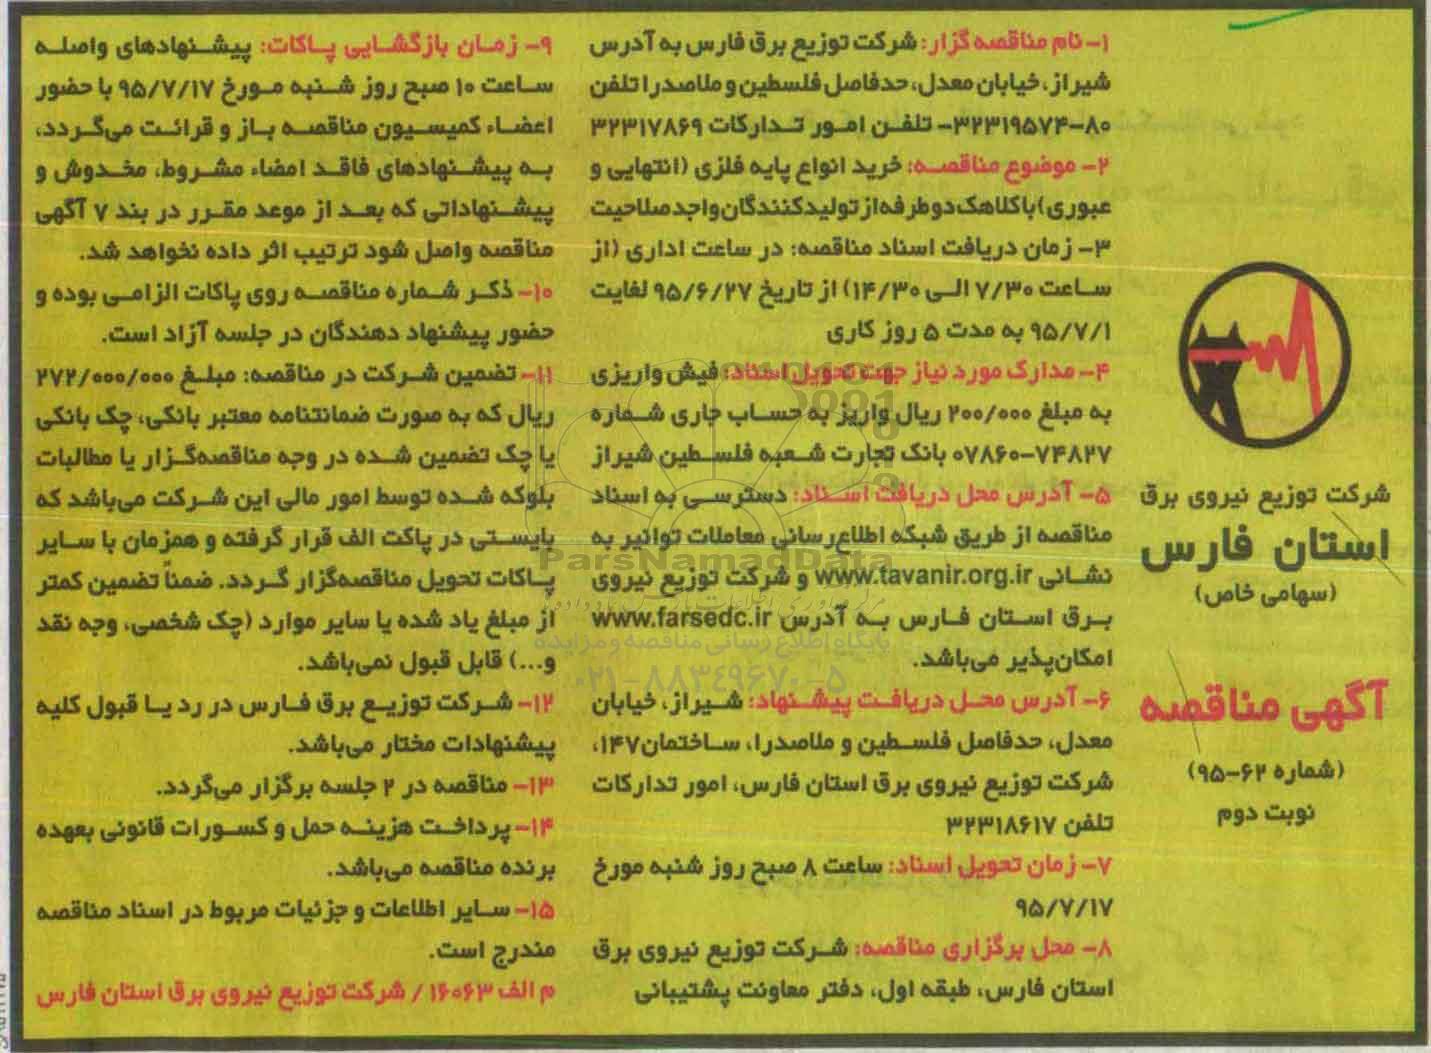 شرکت توزیع نیروی برق
استان فارس
(سهامی خاص)
آگهی مناقصه
(شماره ۶۲-۹۵)
نوبت دوم
۱- نام مناقصه گزار: شرکت توزیع برق فارس به آدرس
شیراز، خیابان معدل، حدفاصل فلسطین و ملاصدرا تلفن
۳۲۳۱۹۵۷۴-۸۰- تلفن امور تدارکات ۳۲۳۱۷۸۶۹
۲- موضوع مناقصه: خرید انواع پایه فلزی (انتهایی و
عبوری) با کلاهک دو طرفه از تولیدکنندگان واجد صلاحیت
۳- زمان دریافت اسناد مناقصه: در ساعت اداری (از
ساعت ۷/۳۰ الی ۱۴/۳۰) از تاریخ ۹۵/۶/۲۷ لغایت
۹۵/۷/۱ به مدت ۵ روز کاری
۴- مدارک مورد نیاز جهت تحویل اسناد: فیش واریزی
به مبلغ ۲۰۰/۰۰۰ ریال واریز به حساب جاری شماره
۰۷۸۶۰-۷۴۸۲۷ بانک تجارت شعبه فلسطین شیراز
۵- آدرس محل دریافت اسناد: دسترسی به اسناد
مناقصه از طریق شبکه اطلاع رسانی معاملات توانیر به
نشانی www.tavanir.org.ir و شرکت توزیع نیروی
برق استان فارس به آدرس www.farsedc.ir
امکان‌پذیر می‌باشد.
۶- آدرس محل دریافت پیشنهاد: شیراز، خیابان
معدل، حدفاصل فلسطین و ملاصدرا، ساختمان ۱۴۷،
شرکت توزیع نیروی برق استان فارس، امور تدارکات
تلفن ۳۲۳۱۸۶۱۷
۷- زمان تحویل اسناد: ساعت ۸ صبح روز شنبه مورخ
۹۵/۷/۱۷
۸- محل برگزاری مناقصه: شرکت توزیع نیروی برق
استان فارس، طبقه اول، دفتر معاونت پشتیبانی
۹- زمان بازگشایی پاکات: پیشنهادهای واصله
ساعت ۱۰ صبح روز شنبه مورخ ۹۵/۷/۱۷ با حضور
اعضاء کمیسیون مناقصه باز و قرائت می‌گردد،
به پیشنهادهای فاقد امضاء مشروط، مخدوش و
پیشنهاداتی که بعد از موعد مقرر در بند ۷ آگهی
مناقصه واصل شود ترتیب اثر داده نخواهد شد.
۱۰- ذکر شماره مناقصه روی پاکات الزامی بوده و
حضور پیشنهاد دهندگان در جلسه آزاد است.
۱۱- تضمین شرکت در مناقصه: مبلغ ۲۷۲/۰۰۰/۰۰۰
ریال که به صورت ضمانتنامه معتبر بانکی، چک بانکی
یا چک تضمین شده در وجه مناقصه‌گزار یا مطالبات
بلوکه شده توسط امور مالی این شرکت می‌باشد که
بایستی در پاکت الف قرار گرفته و همزمان با سایر
پاکات تحویل مناقصه‌گزار گردد. ضمناً تضمین کمتر
از مبلغ یاد شده یا سایر موارد (چک شخصی، وجه نقد
و...) قابل قبول نمی‌باشد.
۱۲- شرکت توزیع برق فارس در رد یا قبول کلیه
پیشنهادات مختار می‌باشد.
۱۳- مناقصه در ۲ جلسه برگزار می‌گردد.
۱۴- پرداخت هزینه حمل و کسورات قانونی بعهده
برنده مناقصه می‌باشد.
۱۵- سایر اطلاعات و جزئیات مربوط در اسناد مناقصه
مندرج است.
م الف ۱۶۰۶۳ / شرکت توزیع نیروی برق استان فارس
ParsNamadData
پایگاه اطلاع رسانی مناقصه و مزایده
۰۲۱-۸۸۳۴۹۶۷۰-۵